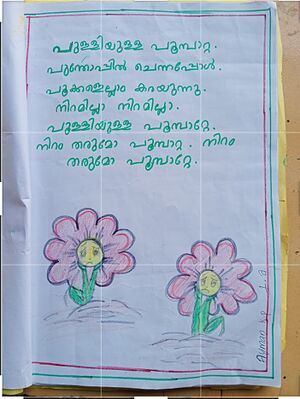 പുള്ളിയുള്ള പൂമ്പാറ്റ.
പൂന്തോപ്പിൽ ചെന്നപ്പോൾ.
പൂക്കളെല്ലാം കരയുന്നു.
നിറമില്ലാ നിറമില്ലാ.
പുള്ളിയുള്ള പൂമ്പാറ്റേ.
നിറം തരുമോ പൂമ്പാറ്റ. നിറം
തരുമോ പൂമ്പാറ്റേ.